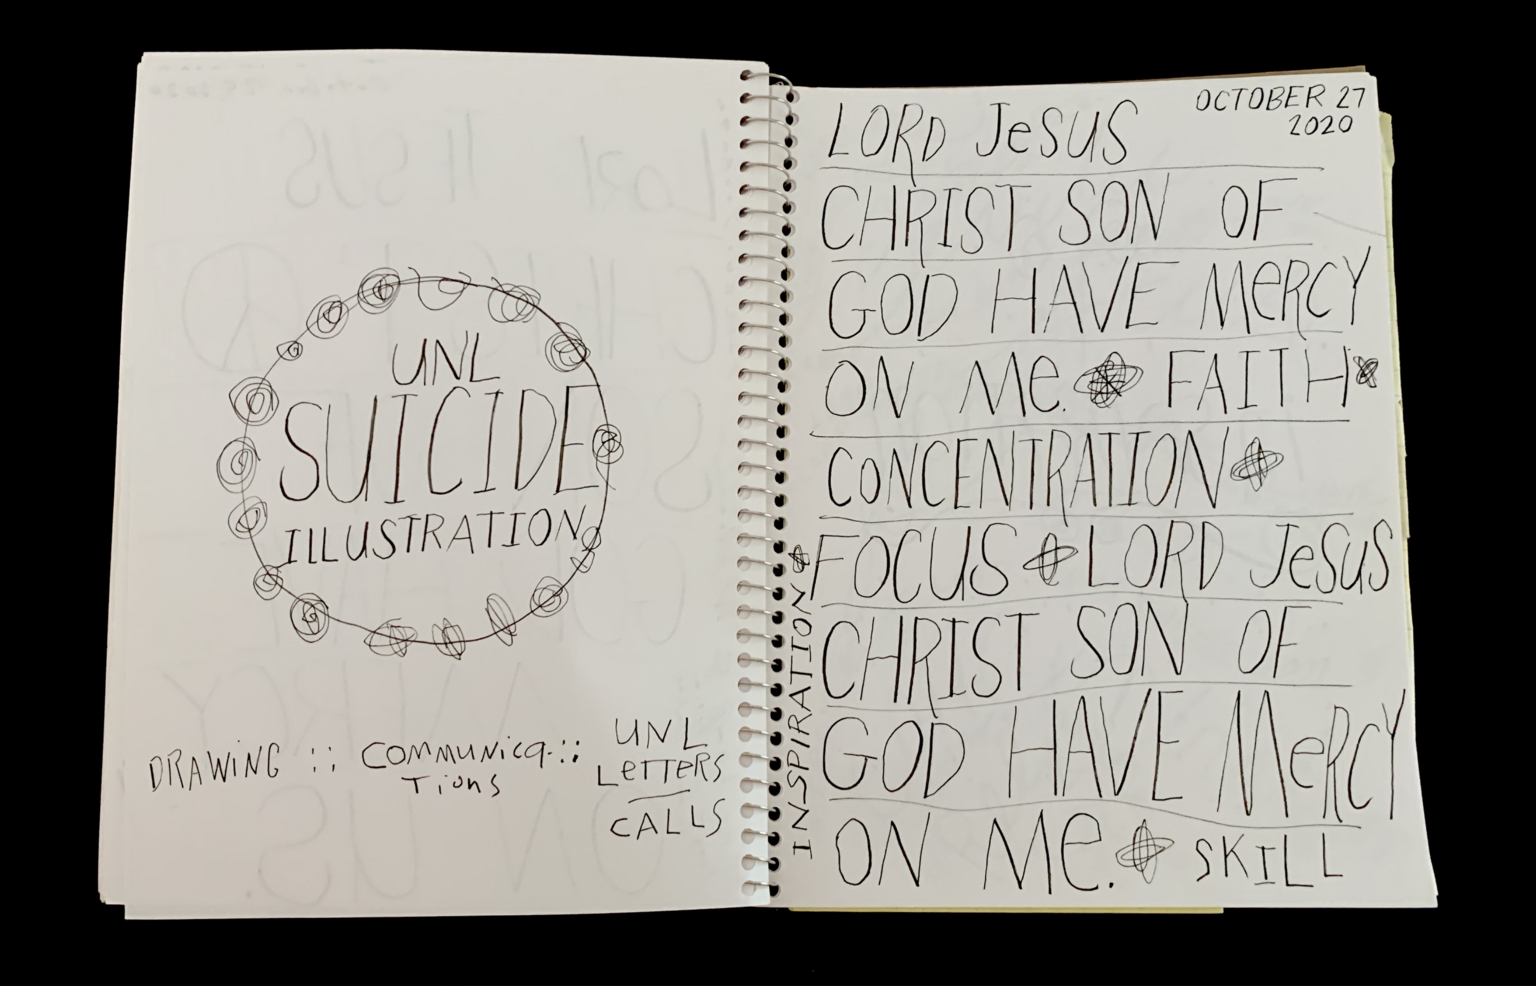 UNL
SUICIDE
ILLUSTRATION
DRAWING :: COMMUNICA- ::
TIONS
UNL
LETTERS
CALLS
OCTOBER 27
2020
LORD JESUS
CHRIST SON OF
GOD HAVE MERCY
ON ME. FAITH
CONCENTRATION
FOCUS LORD JESUS
CHRIST SON OF
GOD HAVE MERCY
ON ME. SKILL
INSPIRATION